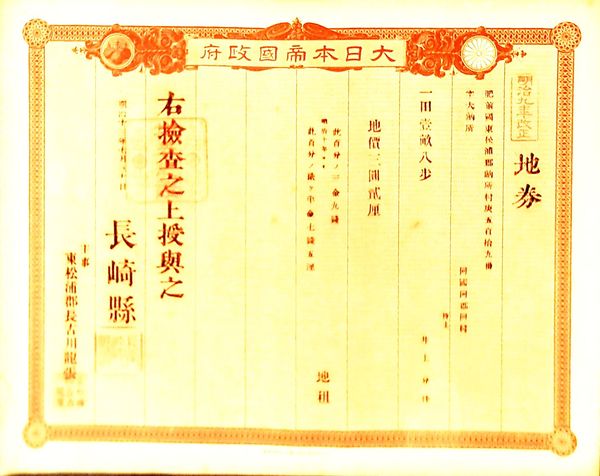 大日本帝國政府
明治九年改正
地券
肥前國東松浦郡納所村第五百拾九番
字大納所
同國同郡同村
持主
井上
一田壹畝八步
地價三圓貳厘
此百分ノ三金九錢
地租
明治十年ヨリ
此百分ノ貳ヶ半金七錢五厘
右撿査之上授與之
明治十二年 月 日
長崎縣
主事
東松浦郡長古川龍張